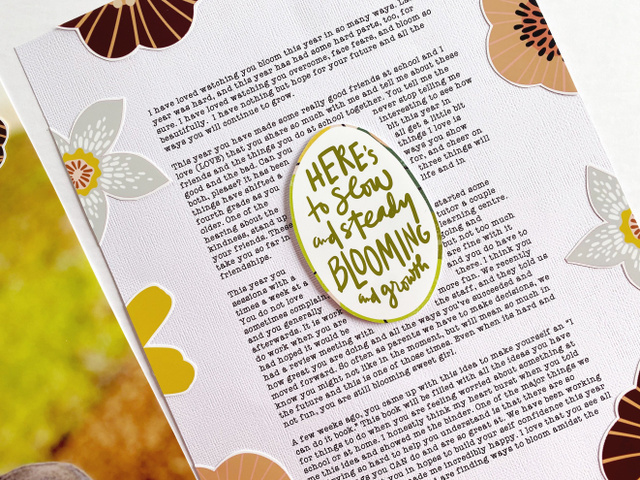 I have loved watching you bloom this year in so many ways.
year was hard, and this year has had some hard parts, too, for
sure. I have loved watching you overcome, face fears, and bloom so
beautifully. I have nothing but hope for your future and all the
ways you will continue to grow.
This year you have made some really good friends at school and I
love (LOVE) that you share so much with me and tell me about these
friends and the things you do at school together. You tell me the
good and the bad. Can you never stop telling me
both, please? It has been interesting to see how
things have shifted a bit this year in
fourth grade as you all get a little bit
older. One of the things I love is
hearing about the ways you show
kindness, stand up for, and cheer on
your friends. These three things will
take you so far in life and in
friendships.
HERE's
to slow
and steady
BLOOMING
and growth
This year you started some
sessions with a tutor a couple
times a week at a learning centre.
You do not love going and
sometimes complain but not too much
and you generally are fine with it
afterwards. It is work and you do have to
do work when you are there. I think you
had hoped it would be more fun. We recently
had a review meeting with the staff, and they told us
how great you are doing and all the ways you've succeeded and
moved forward. So often as parents we have to make decisions, we
know you might not like in the moment, but will mean so much in
the future and this is one of those times. Even when its hard and
not fun, you are still blooming sweet girl.
A few weeks ago, you came up with this idea to make yourself an "I
can do it book." This book will be filled with all the ideas you have
for things to do when you are feeling worried about something at
school or at home. I honestly think my heart burst when you told
me this idea and showed me the binder. One of the major things we
trying so hard to help you understand is that there are so
things you CAN do and are so great at. We have been working
you in hopes to build your self confidence this year
made me incredibly happy. I love that you see all
are finding ways to bloom amidst the